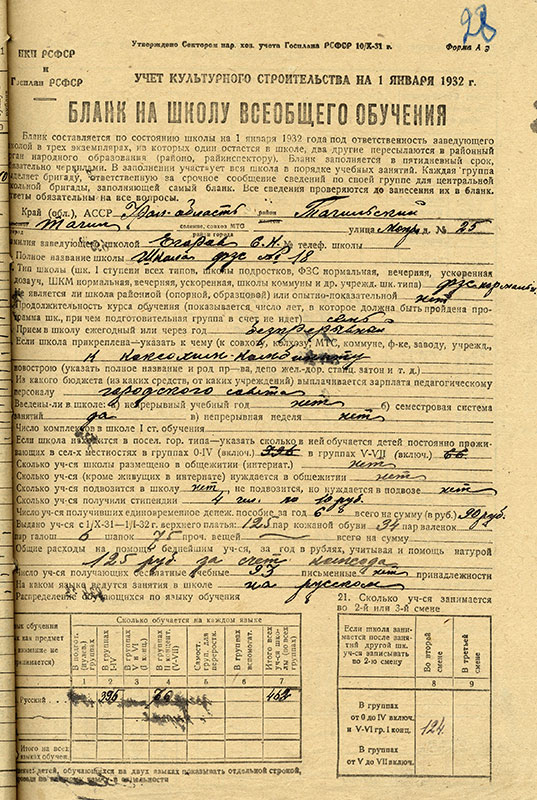 28
Утверждено Сектором нар. хоз. учета Госплана РСФСР 10/X-31 г.
Форма А
НКП РСФСР
и
Госплан РСФСР
УЧЕТ КУЛЬТУРНОГО СТРОИТЕЛЬСТВА НА 1 ЯНВАРЯ 1932 г.
БЛАНК НА ШКОЛУ ВСЕОБЩЕГО ОБУЧЕНИЯ
Бланк составляется по состоянию школы на 1 января 1932 года под ответственность заведующего
колой в трех экземплярах, из которых один остается в школе, два другие пересылаются в районный
рган народного образования (районо, райинспектору). Бланк заполняется в пятидневный срок,
бязательно чернилами. В заполнении участвует вся школа в порядке учебных занятий. Каждая группа
ыделяет бригаду, ответственную за срочное сообщение сведений по своей группе для центральной
кольной бригады, заполняющей самый бланк. Все сведения проверяются до занесения их в бланк.
тветы обязательны на все вопросы.
Край (обл.), АССР Урал-область район Тагильский
Тагил селение, совхоз МТС улица д. № 25
район города
милия заведующего школой Егоров С. Н. № телеф. школы
Полное название школы Школа фзс № 18
Тип школы (шк. I ступени всех типов, школы подростков, ФЗС нормальная, вечерняя, ускоренная
ШКМ нормальная, вечерняя, ускоренная, школы коммуны и др. учрежд. шк. типа) фзс нормальн
Не является ли школа районной (опорной, образцовой) или опытно-показательной нет
Продолжительность курса обучения (показывается число лет, в которое должна быть пройдена про-
грамма шк., при чем подготовительная группа в счет не идет) семь
Прием в школу ежегодный или через год
Если школа прикреплена—указать к чему (к совхозу, колхозу, МТС, коммуне, ф-ке, заводу, учрежд.,
к
новострою (указать полное название и род пр—ва, депо жел-дор. станц. затон и т. д.)
Из какого бюджета (из каких средств, от каких учреждений) выплачивается зарплата педагогическому
персоналу городского совета
Введены-ли в школе: а) непрерывный учебный год нет б) семестровая система
занятий да в) непрерывная неделя нет
Число комплектов в школе I ст. обучения
Если школа находится в посел. гор. типа—указать сколько в ней обучается детей постоянно прожи-
вающих в сел-х местностях в группах 0-IV (включ.) в группах V-VII (включ.)
Сколько уч-ся школы размещено в общежитии (интернат.) нет
Сколько (кроме живущих в интернате) нуждается в общежитии нет
Сколько подвозится в школу нет, не подвозится, но нуждается в подвозе нет
Сколько получили стипендии 4 чел. по 10 руб.
Число уч-ся получивших единовременное денеж. пособие за год 6 всего на сумму (в руб.) 90 руб.
Выдано уч-ся с 1/X-31—1/I-32 г. верхнего платья: 125 пар кожаной обуви 34 пар валенок
пар галош 6 шапок 75 проч. вещей — всего на сумму
Общие расходы на помощь беднейшим уч-ся, за год в рублях, учитывая и помощь натурой
125 руб. за счет
Число уч-ся получающих бесплатные учебные 93 письменные нет принадлежности
На каком языке ведутся занятия в школе на русском
Распределение обучающихся по языку обучения
21. Сколько уч-ся занимается
во 2-й или 3-й смене
зык обучения
как предмет
нимание не
принимается)
Сколько обучается на каждом языке
В подгот. (нулев.) группах
В группах I-IV
В группах V и VI (I конц.)
В группах II концент. (V-VII)
Сверст. груп. для перерост.
В группах вспомогат.
Итого в всех уч-ся школы (по всех группах)
1 2 3 4 5 6 7
Русский 396 462
Итого на всех
языках обучен.
Если школа зани-
мается после заня-
тий другой шк.
уч-ся записывать
во 2-ю смену
Во второй смене
В третьей смене
8 9
В группах
от 0 до IV включ.
и V-VI гр. I конц.
124
В группах
от V до VII включ.
детей, обучающихся на двух языках показывать отдельной строкой,